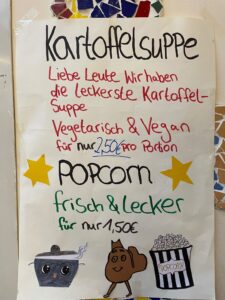 Kartoffelsuppe
Liebe Leute Wir haben
die leckerste Kartoffel-
Suppe
Vegetarisch & Vegan
für nur 2,50€ pro Portion
Popcorn
frisch & lecker
für nur 1,50€
POPCORN